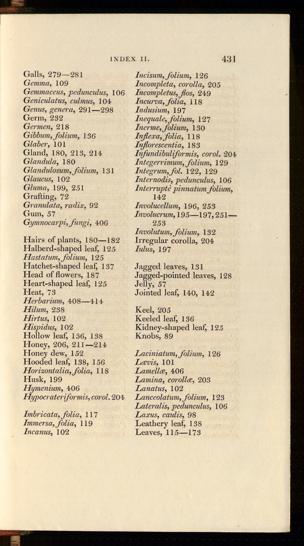 INDEX II. 431
Galls, 279—281
Gemma, 109
Gemmaceus, pedunculus, 106
Geniculatus, culmus, 104
Genus, genera, 291—298
Germ, 232
Germen, 218
Gibbum, folium, 136
Glaber, 101
Gland, 180, 213, 214
Glandula, 180
Glandulosum, folium, 131
Glaucus, 102
Gluma, 199, 251
Grafting, 72
Granulata, radix, 92
Gum, 57
Gymnocarpi, fungi, 406
Hairs of plants, 180—182
Halberd-shaped leaf, 125
Hastatum, folium, 125
Hatchet-shaped leaf, 137
Head of flowers, 187
Heart-shaped leaf, 125
Heat, 73
Herbarium, 408—414
Hilum, 238
Hirtus, 102
Hispidus, 102
Hollow leaf, 136, 138
Honey, 206, 211—214
Honey dew, 152
Hooded leaf, 138, 156
Horizontalia, folia, 118
Husk, 199
Hymenium, 406
Hypocrateriformis, corol. 204
Imbricata, folia, 117
Immersa, folia, 119
Incanus, 102
Incisum, folium, 126
Incompleta, corolla, 205
Incompletus, flos, 249
Incurva, folia, 118
Indusium, 197
Inequale, folium, 127
Inerme, folium, 130
Inflexa, folia, 118
Inflorescentia, 183
Infundibuliformis, corol. 204
Integerrimum, folium, 129
Integrum, fol. 122, 129
Internodis, pedunculus, 106
Interruptè pinnatum, folium,
142
Involucellum, 196, 253
Involucrum, 195—197, 251—
253
Involutum, folium, 132
Irregular corolla, 204
Iulus, 197
Jagged leaves, 131
Jagged-pointed leaves, 128
Jelly, 57
Jointed leaf, 140, 142
Keel, 205
Keeled leaf, 136
Kidney-shaped leaf, 125
Knobs, 89
Laciniatum, folium, 126
Lævis, 101
Lamellæ, 406
Lamina, corollæ, 203
Lanatus, 102
Lanceolatum, folium, 123
Lateralis, pedunculus, 106
Laxus, caulis, 98
Leathery leaf, 138
Leaves, 115—173